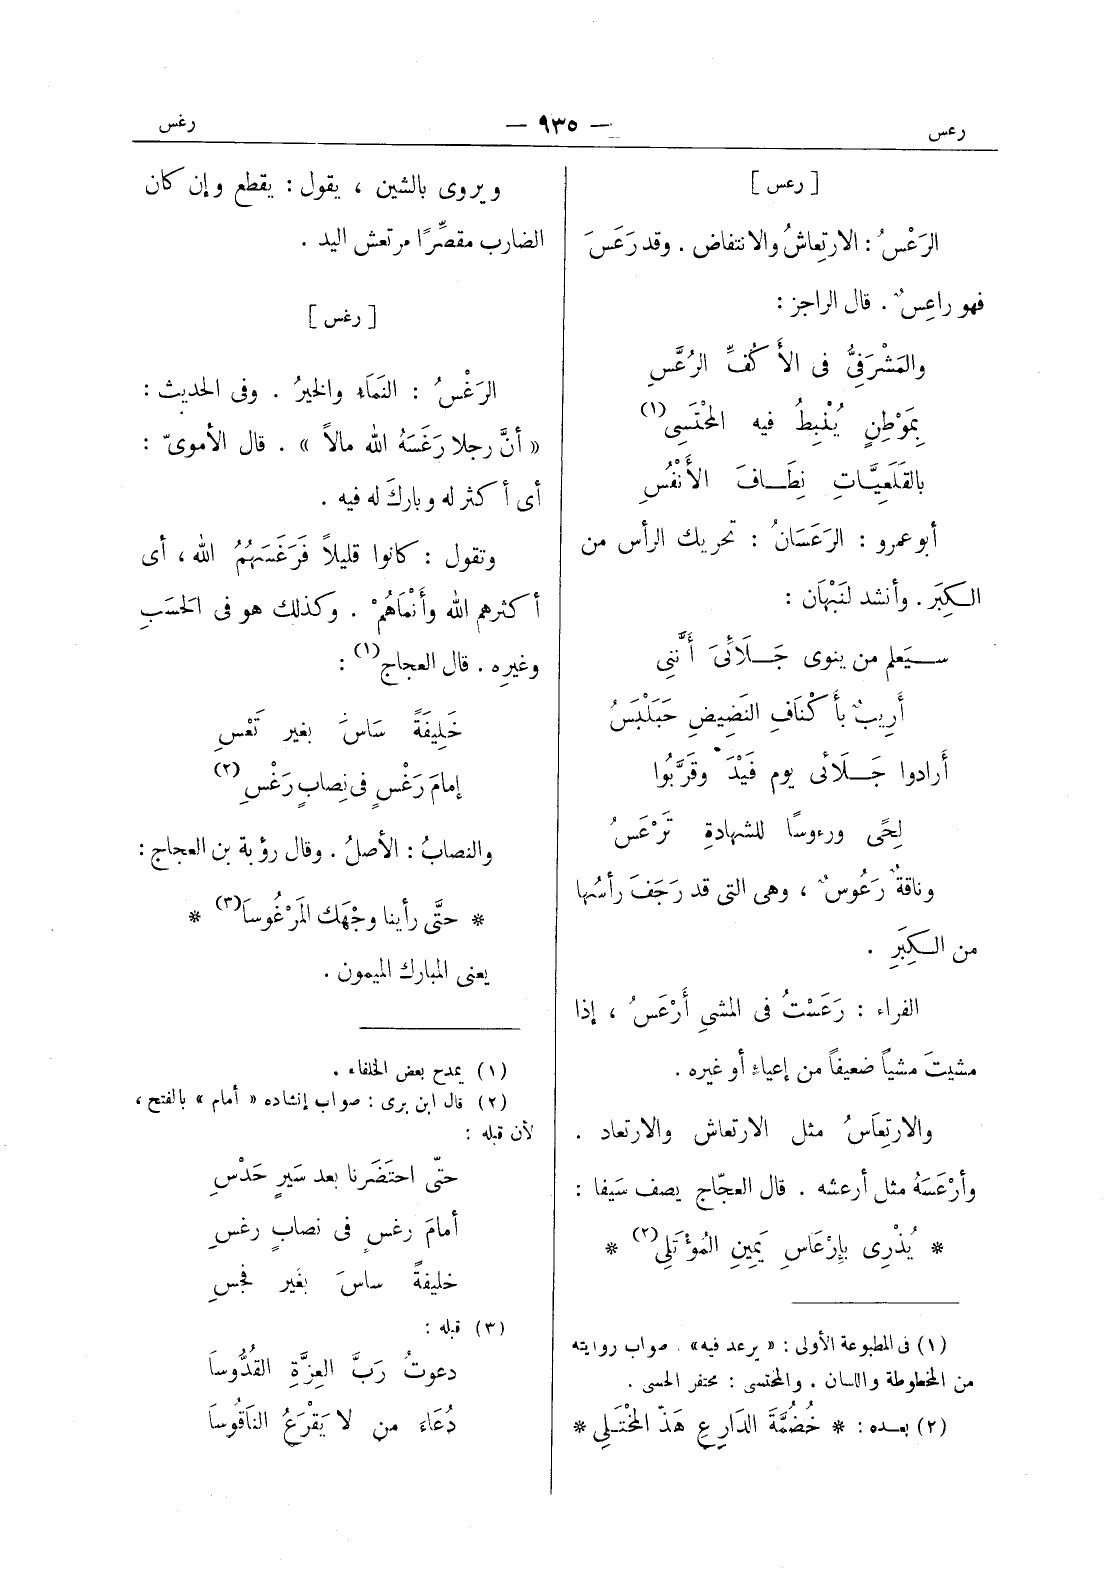 رعس
— ٩٣٥ —
رغس
[ رعس ]
الرَعْسُ : الارتِعاشُ والانتفاض . وقد رَعَسَ
فهو راعِسٌ . قال الراجز :
والمَشْرَفِىُّ فى الأَكُفِّ الرُعَّسِ
بِمَوْطِنٍ يُنْبِطُ فيه المُحْتَسِى(١)
بالقَلَعِيَّـاتِ نِطَـافَ الأَنْفُسِ
أبو عمرو : الرَعَسَانُ : تحريك الرأس من
الـكِبَر . وأنشد لنَبْهَان :
سـيَعلم من ينوى جَـلَائِىَ أَنَّنِى
أَرِيبٌ بأَكْنَافِ النَضِيضِ حَبَلْبَسُ
أَرادوا جَـلَائى يوم فَيْدَ وقَرَّبُوا
لِحًى ورءوسًا للشهادةِ تَرْعَسُ
وناقةٌ رَعُوسٌ ، وهى التى قد رَجَفَ رأسُها
من الـكِبَرِ .
الفراء : رَعَسْتُ فى المشىِ أَرْعَسُ ، إذا
مشيتَ مشياً ضعيفاً من إعياء أو غيره .
والارتِعَاسُ مثل الارتعاش والارتعاد .
وأرْعَسَهُ مثل أرعشه . قال العجّاج يصف سَيفا :
* يُذْرِى بِإِرْعَاسِ يَمِينِ المُؤْتَلِى(٢) *
(١) فى المطبوعة الأولى : « يرعد فيه » . صواب روايته
من المخطوطة واللسان . والمحتسى : محتفر الحسى .
(٢) بعـده : * خُضُمَّةَ الدَارِعِ هَذَّ المُخْتَـلِى *
ويروى بالشين ، يقول : يقطع وإن كان
الضارب مقصِّرًا مرتعش اليد .
[ رغس ]
الرَغْسُ : النَمَاء والخيرُ . وفى الحديث :
« أنَّ رجلا رَغَسَهُ الله مالاً » . قال الأموىّ :
أى أكثر له وباركَ له فيه .
وتقول : كانوا قليلاً فَرَغَسَهُمُ الله ، أى
أكثرهم الله وأَنْمَاهُمْ . وكذلك هو فى الحَسَبِ
وغيرِه . قال العجاج(١) :
خَلِيفَةً سَاسَ بغير تَعْسِ
إمامَ رَغْسٍ فى نِصابِ رَغْسِ(٢)
والنصابُ : الأصلُ . وقال رؤبة بن العجاج :
* حتَّى رأينا وجْهَك المَرْغُوسَا(٣) *
يعنى المبارك الميمون .
(١) يمدح بعض الخلفاء .
(٢) قال ابن برى : صواب إنشاده « أمام » بالفتح ،
لأن قبله :
حتّى احتَضَرنا بعد سَيرٍ حَدْسِ
أمامَ رغسٍ فى نصابِ رغسِ
خليفةً ساسَ بغَير فَجسِ
(٣) قبله :
دعوتُ رَبَّ العِزَّةِ القُدُّوسَا
دُعَاءَ من لا يَقْرَعُ النَاقُوسَا